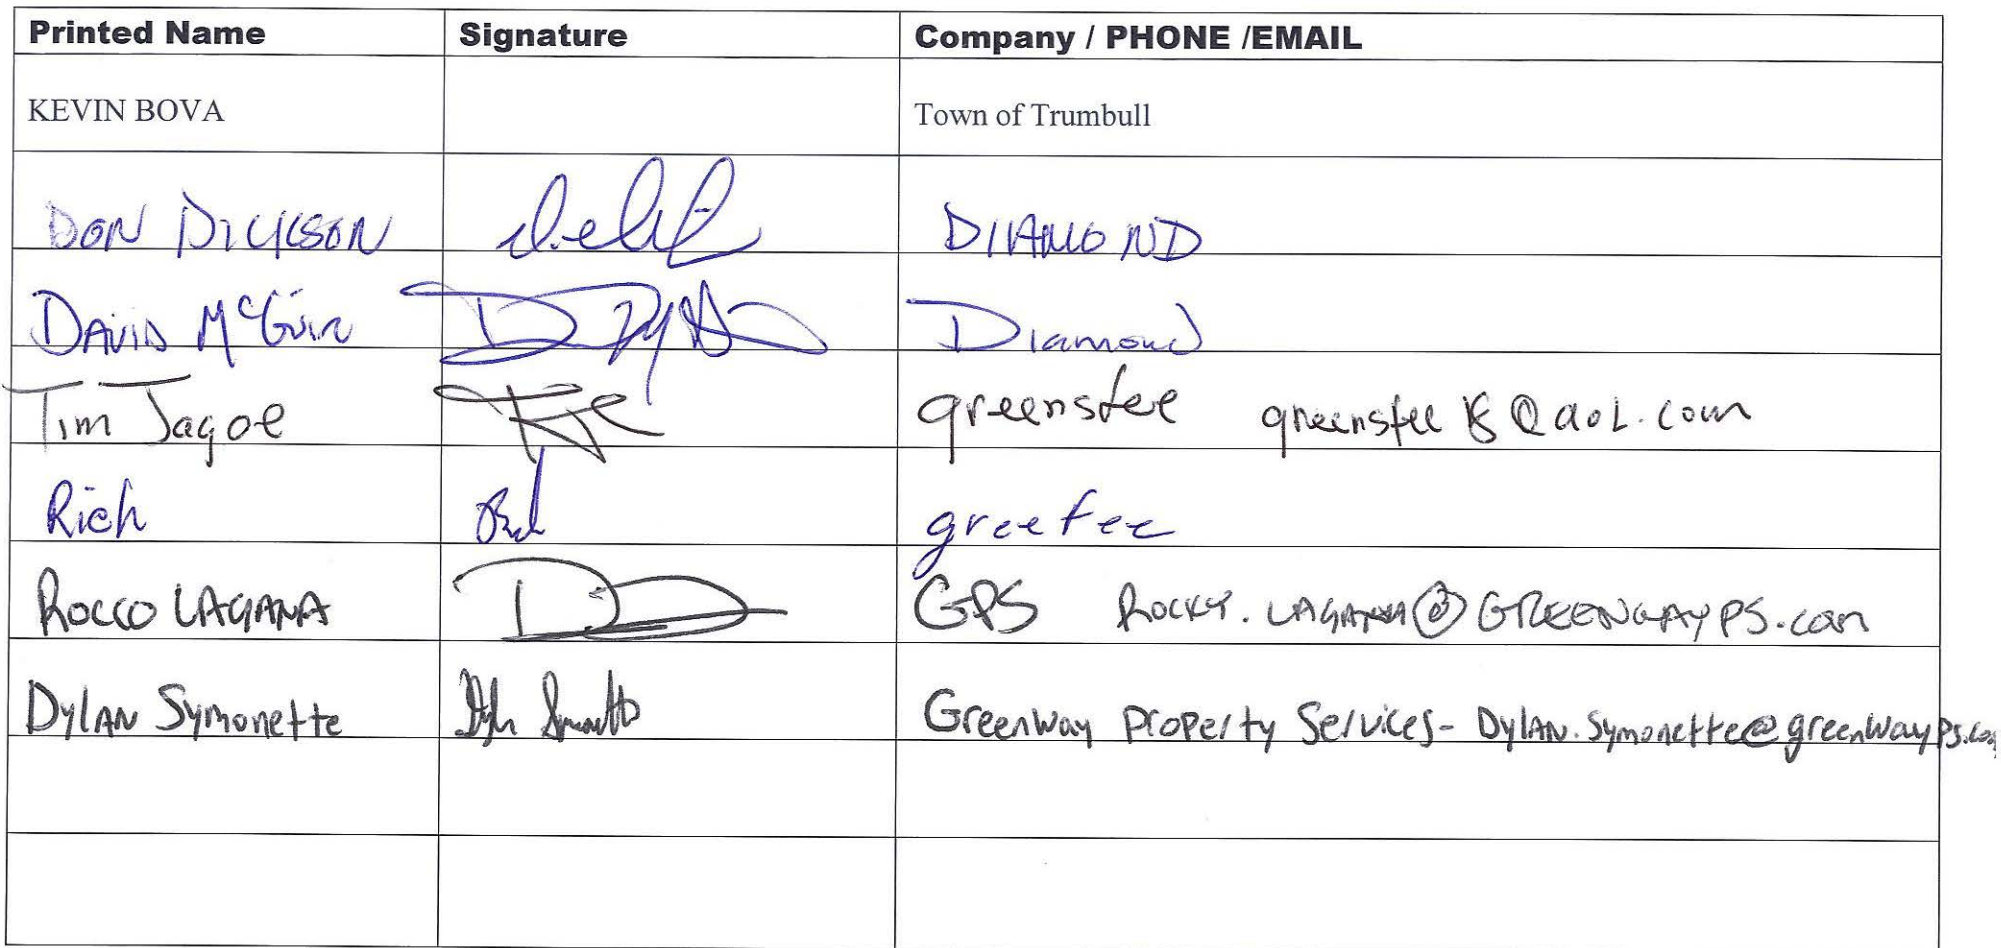 Printed Name Signature Company / PHONE /EMAIL
KEVIN BOVA Town of Trumbull
DON DICKSON DIAMOND
DAVID McGuir Diamond
Tim Jagoe greenstee greenstee18@aol.com
Rich greefee
ROCCO LAGANA GPS ROCKY.LAGANA@GREENWAYPS.com
DylAN Symonette GreenWay Property Services- DylAN.Symonette@greenwayPS.com